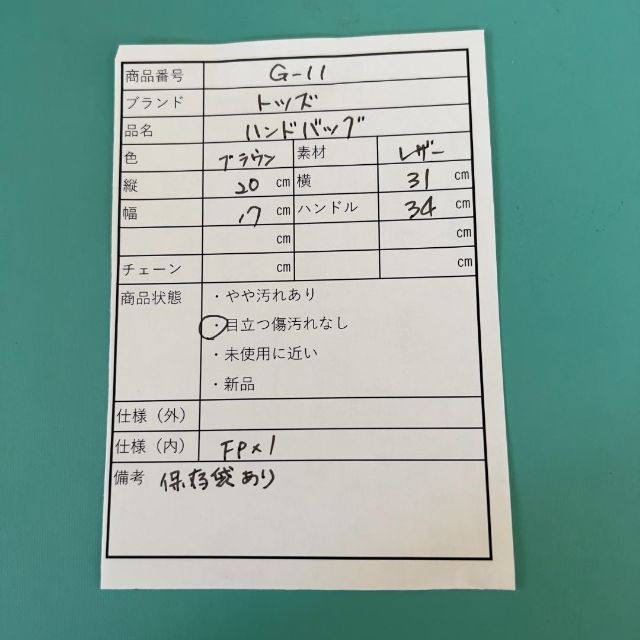 商品番号 G-11
ブランド トッズ
品名 ハンドバッグ
色 ブラウン 素材 レザー
縦 20 cm 横 31 cm
幅 17 cm ハンドル 34 cm
cm cm
チェーン cm cm
商品状態 ・やや汚れあり
・目立つ傷汚れなし
・未使用に近い
・新品
仕様（外）
仕様（内） FP×1
備考 保存袋あり